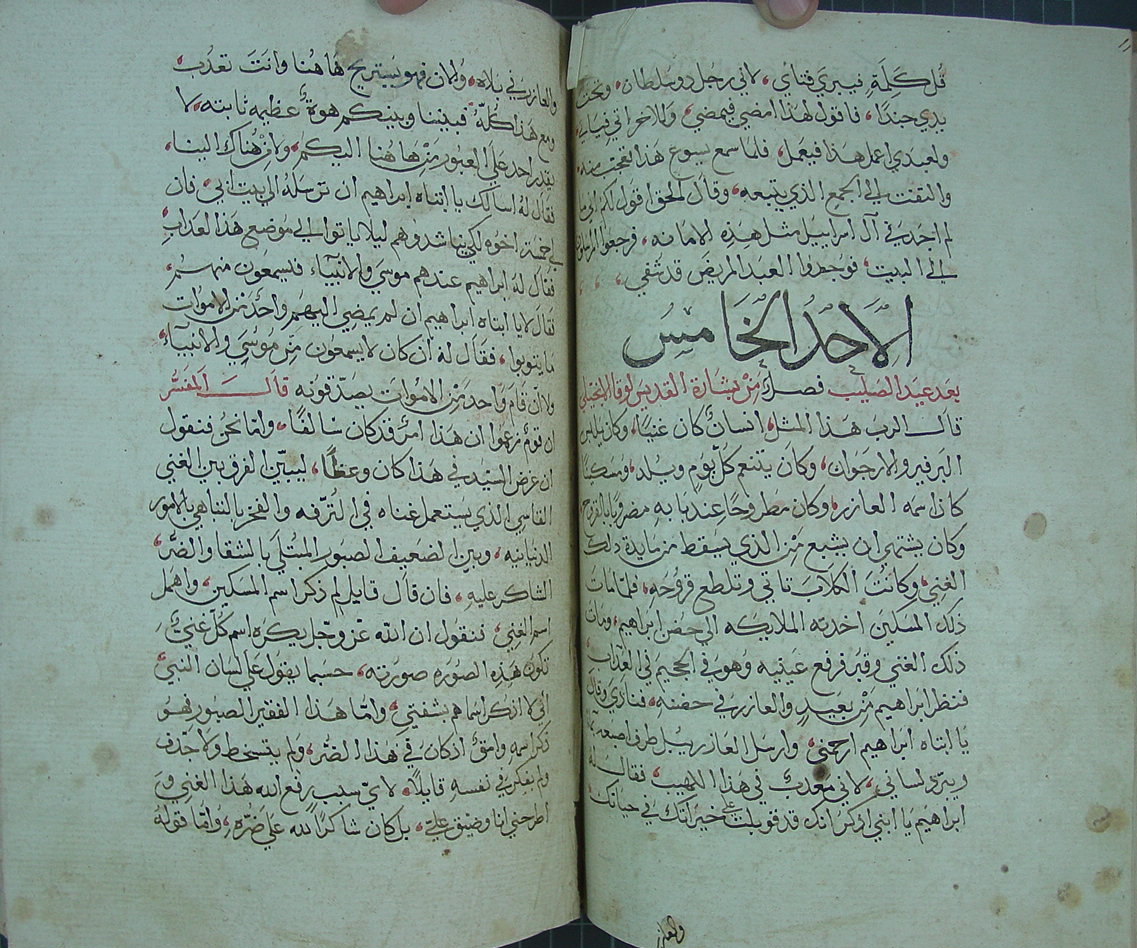 قل كلمة فيبري فتاي، لاني رجل دو سلطان، وتحت
يدي جندًا، فاقول لهذا امضي فيمضي، وللاخر اتي فياتي،
ولعبدي اعمل هذا فيعمل، فلما سمع يسوع هذا تعجب منه،
والتفت الى الجمع الذي يتبعه، وقال الحق اقول لكم اني ما
لم اجد في آل اسراييل مثل هذه الامانه، فرجعوا المرسلون
الى البيت، فوجدوا العبد المريض قد شفي،
الاحد الخامس
بعد عيد الصليب فصل من بشارة القديس لوقا الانجيلي
قال الرب هذا المثل، انسان كان غنيا، وكان يلبس
البرفير والارجوان، وكان يتنعم كل يوم ويلد، ومسكينا
كان اسمه العازر، وكان مطروحا عند بابه مضروبا بالقروح
وكان يشتهى ان يشبع من الذي يسقط من مايدة دلك
الغني، وكانت الكلاب تاتي وتلطع قروحه، فلما مات
ذلك المسكين اخدته الملايكه الى حضن ابراهيم، ومات
ذلك الغني وقبر فرفع عينيه وهو في الجحيم في العذاب
فنظر ابراهيم من بعيد والعازر في حضنه، فنادى وقال
يا ابتاه ابراهيم ارحمني، وارسل العازر ليبل طرف اصبعه
ويبرد لساني، لاني معدب في هذا اللهيب، فقال له
ابراهيم يا ابني ادكر انك قد قوبلت على خيراتك في حياتك
والعازر
والعازر في بلاه، والان فهو يستريح هاهنا وانت تعذب
ومع هذا كلة، فبيننا وبينكم هوة عظيمه ثابته، لا
يقدر احد على العبور من هاهنا اليكم، ولا من هناك الينا،
فقال له اسالك يا ابتاه ابراهيم ان ترسله الى بيت ابي، فان
لي خمسة اخوه لكي يناشدوهم ليلا ياتوا الى موضع هذا العداب
فقال له ابراهيم عندهم موسى والانبياء فليسمعون منهم،
فقال لا يا ابتاه ابراهيم ان لم يمضي اليهم واحد من الاموات
ما يتوبوا، فقال له ان كان لا يسمعون من موسى والانبيآء
ولا ان قام واحد من الاموات يصدقونه قال المفسر
ان قوم زعموا ان هذا امر قد كان سالفا، واما نحن فنقول
ان غرض السيد في هذا كان وعظا، ليبين الفرق بين الغني
القاسي الذي يستعمل غناه في الترفه والفخر بالتناهي بالامور
الدنيانيه، وبين الضعيف الصبور المبتلي بالشقا والضر
الشاكر عليه، فان قال قايل لم ذكر اسم المسكين، واهمل
اسم الغني، فنقول ان الله عز وجل يكره اسم كل غني
تكون هذه الصوره صورته، حسبما يقول على لسان النبي
اني لا اذكر اسماهم بشفتي، واما هذا الفقير الصبور فهو
ذكر اسمه وامق اذ كان في هذا الضر، ولم يتسخط ولا جدف
ولم يفكر في نفسه قايلا، لاي سبب رفع الله هذا الغني و
اطرحني انا وضيق علي، بل كان شاكرا لله على ضره، واما قوله